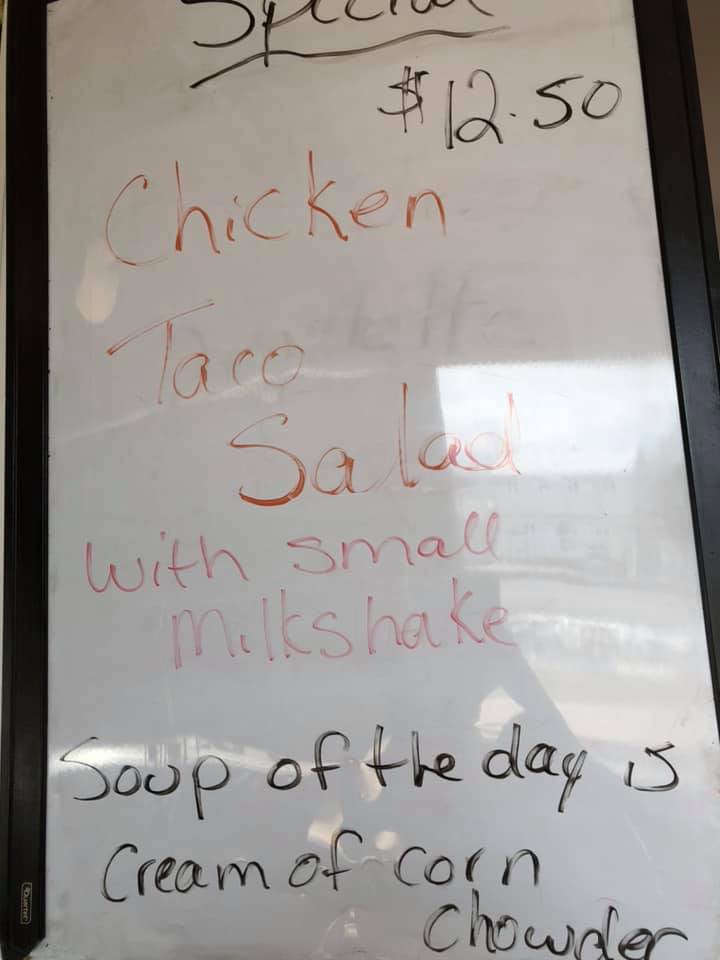 Special
$12.50
Chicken
Taco
Salad
with small
Milkshake
Soup of the day is
Cream of corn
Chowder